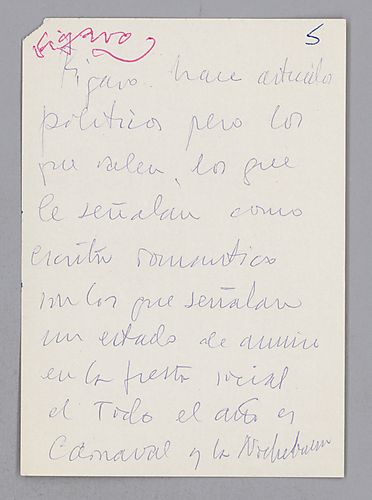 Fígaro
5
Fígaro. hace artículos
políticos pero los
que valen, los que
le señalan como
escritor romantico
son los que señalan
un estado de animo
en la fiesta social
el Todo el año es
Carnaval y la Nochebuena